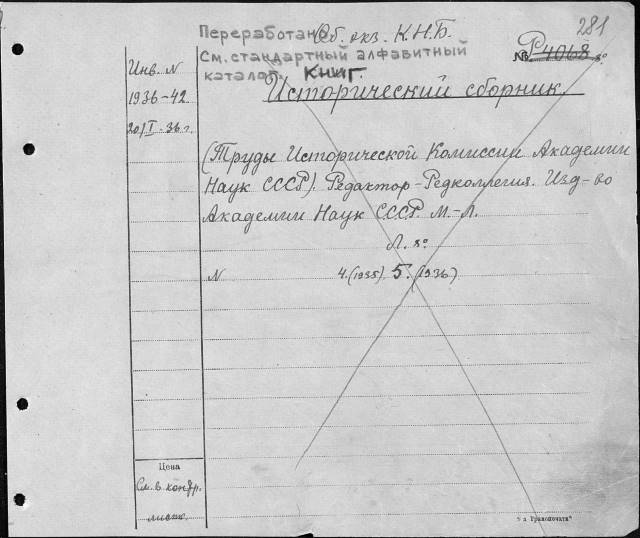 281
Переработано Об. экз. К.Н.Б.
См. стандартный алфавитный
каталог. КНИГ.
№ Р4068 8°
Инв. N
1936-42
20/I-36 г.
Исторический сборник.
(Труды Исторической Комиссии Академии
Наук СССР). Редактор-Редколлегия. Изд-во
Академии Наук СССР. М.-Л.
Л. 8°
N 4.(1935). 5.(1936).
Цена
См. в контр.
листк.